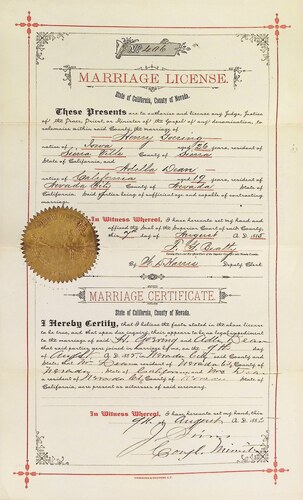 MARRIAGE LICENSE.
State of California, County of Nevada.
These Presents are to authorize and license any Judge, Justice
of the Peace, Priest, or Minister of the Gospel of any denomination, to
solemnize within said County, the marriage of
Henry
native of Iowa aged 26 years, resident of
Sierra Ville County of Sierra
State of California, and Adella Dean
native of California aged 19 years, resident of
Nevada City County of Nevada State of
California. Said parties being of sufficient age and capable of contracting
marriage.
In Witness Whereof, I have hereunto set my hand and
affixed the Seal of the Superior Court of said County,
this 7th day of August A. D. 1885
Deputy Clerk
MARRIAGE CERTIFICATE.
State of California, County of Nevada.
I Hereby Certify, that I believe the facts stated in the above license
to be true, and that upon due inquiry, there appears to be no legal impediment
to the marriage of said H. and Adella Dean
that said parties were joined in marriage by me, on the 9th day
of August A. D. 1885 in Nevada City said County and
State; that Wm Dean a resident of Nevada City County of
Nevada State of California and Mrs Dean
a resident of Nevada City County of Nevada State of
California, are present as witnesses of said ceremony.
In Witness Whereof, I have hereunto set my hand, this
9th day August A. D. 1885
J.